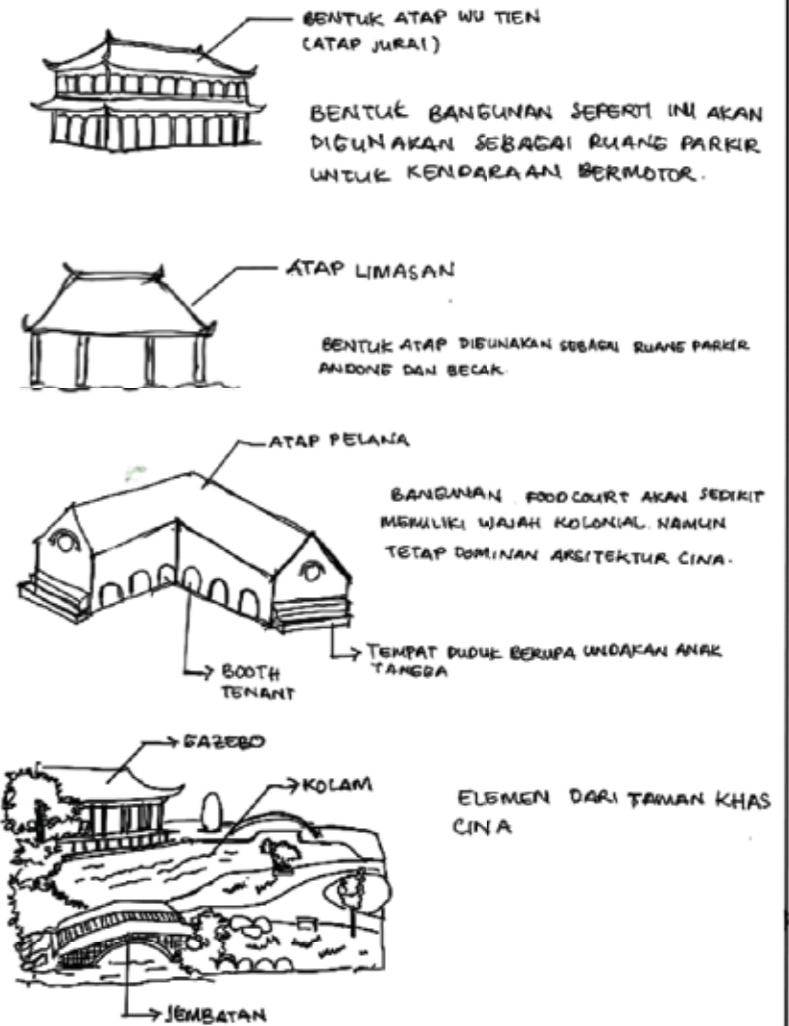 BENTUK ATAP WU TIEN
(ATAP JURAI)
BENTUK BANGUNAN SEPERTI INI AKAN
DIGUNAKAN SEBAGAI RUANG PARKIR
UNTUK KENDARAAN BERMOTOR.
ATAP LIMASAN
BENTUK ATAP DIGUNAKAN SEBAGAI RUANG PARKIR
ANDONG DAN BECAK.
ATAP PELANA
BANGUNAN FOODCOURT AKAN SEDIKIT
MEMILIKI WAJAH KOLONIAL. NAMUN
TETAP DOMINAN ARSITEKTUR CINA.
TEMPAT DUDUK BERUPA UNDAKAN ANAK
TANGGA
BOOTH
TENANT
GAZEBO
KOLAM
ELEMEN DARI TAMAN KHAS
CINA
JEMBATAN